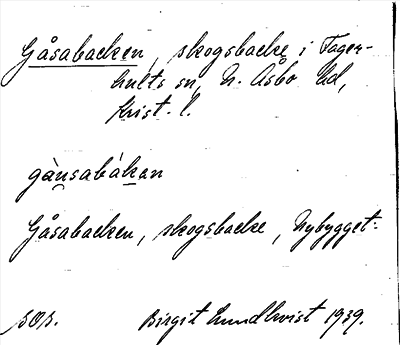 Gåsabacken, skogsbacke i Fager-
hults sn, N. Åsbo hd,
Krist. l.
gànsabákan
Gåsabacken, skogsbacke, Nybygget:
Birgit Lundkvist 1939.